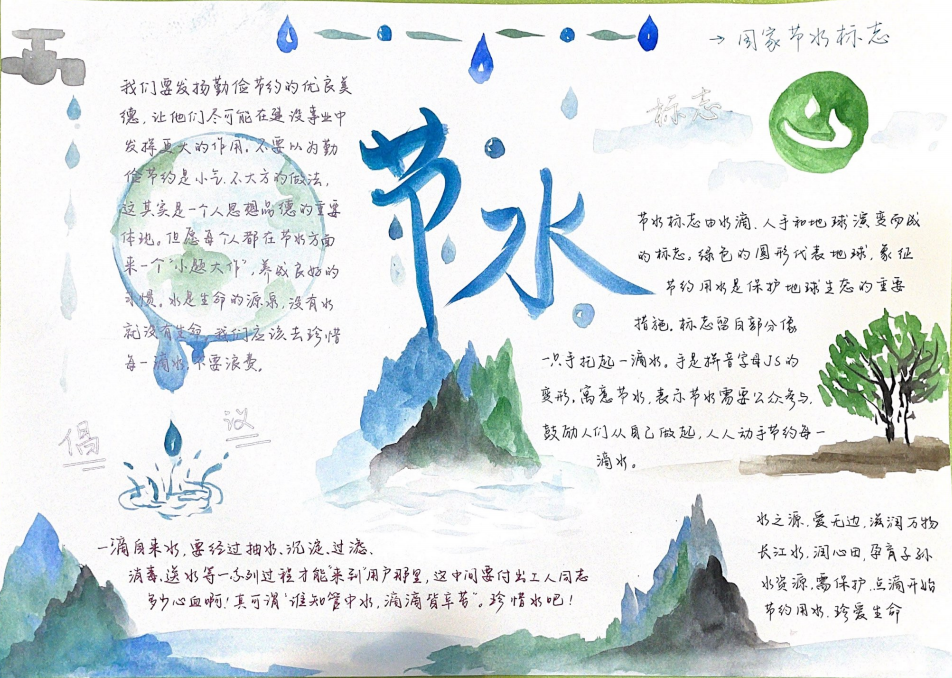 → 国家节水标志
标志
节水
我们要发扬勤俭节约的优良美
德，让他们尽可能在建设事业中
发挥更大的作用。不要以为勤
俭节约是小气、不大方的做法，
这其实是一个人思想品德的重要
体现。但愿每个人都在节水方面
来一个“小题大作”，养成良好的
习惯。水是生命的源泉，没有水
就没有生命，我们应该去珍惜
每一滴水，不要浪费。
倡议
节水标志由水滴、人手和地球演变而成
的标志。绿色的圆形代表地球，象征
节约用水是保护地球生态的重要
措施。标志留白部分像
一只手托起一滴水。手是拼音字母JS的
变形，寓意节水，表示节水需要公众参与，
鼓励人们从自己做起，人人动手节约每一
滴水。
一滴自来水，要经过抽水、沉淀、过滤、
消毒、送水等一系列过程才能“来到”用户那里，这中间要付出工人同志
多少心血啊！真可谓“谁知管中水，滴滴皆辛苦”。珍惜水吧！
水之源，爱无边，滋润万物
长江水，润心田，孕育子孙
水资源，需保护，点滴开始
节约用水，珍爱生命